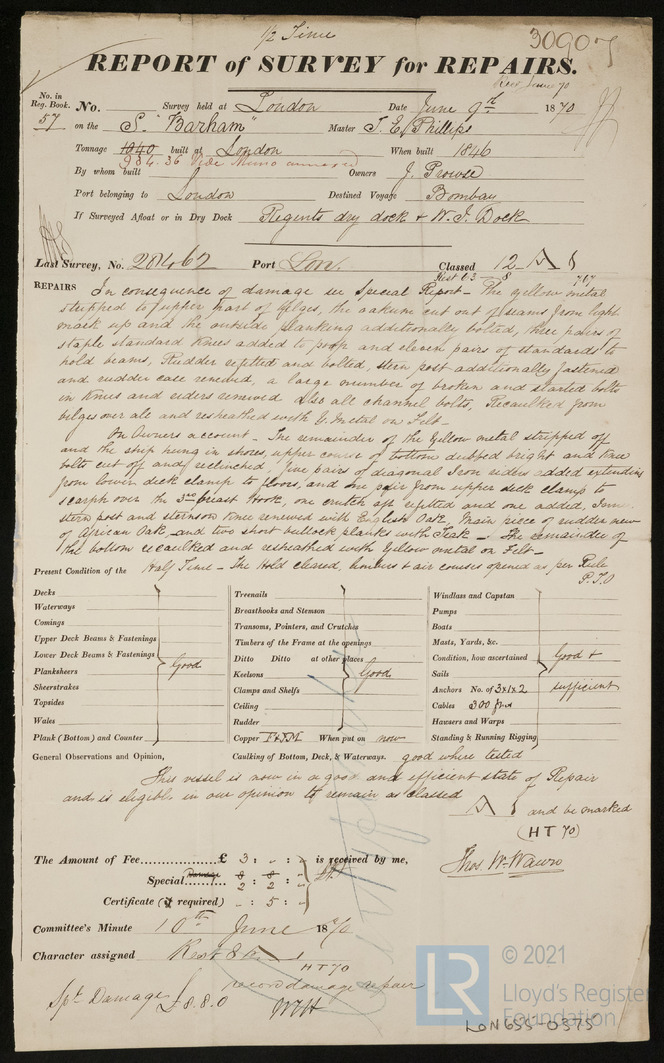 1/2 Time
30907
REPORT of SURVEY for REPAIRS.
No. in Reg. Book. No. Survey held at London Date June 9th 1870
57 on the S. "Barham" Master J. E. Phillips
Tonnage 1040 built at London When built 1846
934.36 Vide Memo annexed
By whom built Owners J. Prowse
Port belonging to London Destined Voyage Bombay
If Surveyed Afloat or in Dry Dock Regents dry dock & W. I. Dock
Last Survey, No. Port Lon. Classed 12 A 1
Rest 63 - 8
REPAIRS In consequence of damage see Special Report - The yellow metal
stripped to upper part of bilges, the oakum cut out of seams from light
mark up and the outside planking additionally bolted, three pairs of
staple standard knees added to poop and eleven pairs of standards to
hold beams, Rudder refitted and bolted, stern post additionally fastened
and rudder case renewed, a large number of broken and started bolts
in knees and riders renewed also all channel bolts, Recaulked from
bilges over all and resheathed with Y. Metal on Felt -
On Owners account - The remainder of the Yellow metal stripped off
and the ship hung in shores, upper course of bottom dubbed bright and
bolts cut off and reclenched, five pairs of diagonal Iron riders added extending
from lower deck clamp to floors, and one pair from upper deck clamp to
scarph over the 3rd breast hook, one crutch aft refitted and one added, Inner
stern post and sternson knee renewed with English Oak, Main piece of rudder new
of African Oak, and two short bullock planks with Teak - The remainder of
the bottom recaulked and resheathed with Yellow metal on Felt -
Present Condition of the Half Time - The Hold cleared, limbers & air courses opened as per Rule
P.T.O
Decks
Waterways
Comings
Upper Deck Beams & Fastenings
Lower Deck Beams & Fastenings
Planksheers
Sheerstrakes
Topsides
Wales
Plank (Bottom) and Counter
Good
Treenails
Breasthooks and Stemson
Transoms, Pointers, and Crutches
Timbers of the Frame at the openings
Ditto Ditto at other places
Keelsons
Clamps and Shelfs
Ceiling
Rudder
Good
Copper F&YM When put on now
Windlass and Capstan
Pumps
Boats
Masts, Yards, &c.
Condition, how ascertained
Sails
Good &
Anchors No. of 3x1x2 sufficient
Cables 300 fms
Hawsers and Warps
Standing & Running Rigging
General Observations and Opinion, Caulking of Bottom, Deck, & Waterways. good where tested
This vessel is now in a good and efficient state of Repair
and is eligible in our opinion to remain as classed
A 1 and be marked
(HT 70)
The Amount of Fee £ 3 : - : - is received by me,
Damage 8 : 8 : -
Special 2 : 2 : -
Certificate (if required) - : 5 : -
Committee's Minute 10th June 1870
Character assigned Rest 8 A 1
HT 70
record damage repair
Spl Damage £8.8.0
© 2021
LR
Lloyd's Register
Foundation
LON655-0375